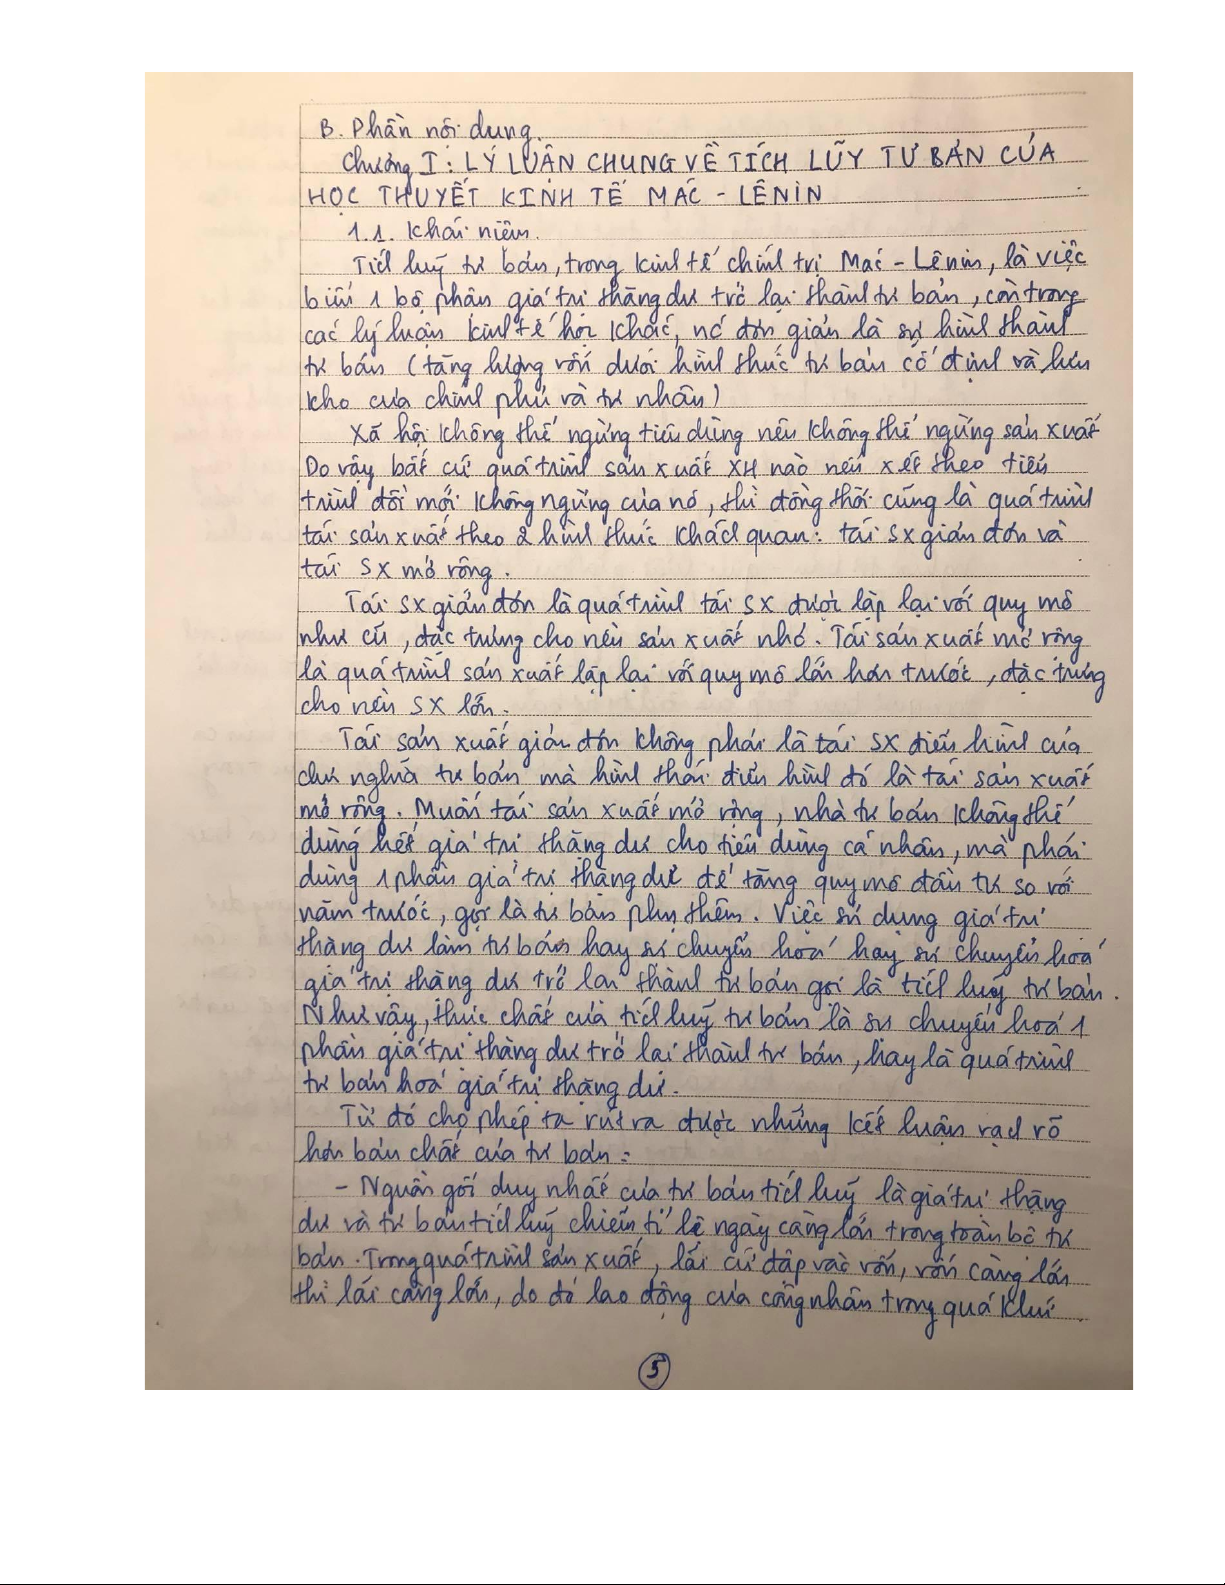 B. Phần nội dung.
Chương I: LÝ LUẬN CHUNG VỀ TÍCH LŨY TƯ BẢN CỦA
HỌC THUYẾT KINH TẾ MÁC - LÊNIN
1.1. Khái niệm.
Tích luỹ tư bản, trong kinh tế chính trị Mác - Lênin, là việc
biến 1 bộ phận giá trị thặng dư trở lại thành tư bản, còn trong
các lý luận kinh tế học khác, nó đơn giản là sự hình thành
tư bản (tăng lượng vốn dưới hình thức tư bản cố định và lưu
kho của chính phủ và tư nhân)
Xã hội không thể ngừng tiêu dùng nên không thể ngừng sản xuất
Do vậy bất cứ quá trình sản xuất XH nào nếu xét theo tiến
trình đổi mới không ngừng của nó, thì đồng thời cũng là quá trình
tái sản xuất theo 2 hình thức khách quan: tái sx giản đơn và
tái sx mở rộng.
Tái sx giản đơn là quá trình tái sx được lặp lại với quy mô
như cũ, đặc trưng cho nền sản xuất nhỏ. Tái sản xuất mở rộng
là quá trình sản xuất lặp lại với quy mô lớn hơn trước, đặc trưng
cho nền sx lớn.
Tái sản xuất giản đơn không phải là tái sx điển hình của
chủ nghĩa tư bản mà hình thái điển hình đó là tái sản xuất
mở rộng. Muốn tái sản xuất mở rộng, nhà tư bản không thể
dùng hết giá trị thặng dư cho tiêu dùng cá nhân, mà phải
dùng 1 phần giá trị thặng dư để tăng quy mô đầu tư so với
năm trước, gọi là tư bản phụ thêm. Việc sử dụng giá trị
thặng dư làm tư bản hay sự chuyển hoá hay sự chuyển hoá
giá trị thặng dư trở lại thành tư bản gọi là tích luỹ tư bản.
Như vậy, thực chất của tích luỹ tư bản là sự chuyển hoá 1
phần giá trị thặng dư trở lại thành tư bản, hay là quá trình
tư bản hoá giá trị thặng dư.
Từ đó cho phép ta rút ra được những kết luận vạch rõ
hơn bản chất của tư bản:
- Nguồn gốc duy nhất của tư bản tích luỹ là giá trị thặng
dư và tư bản tích luỹ chiếm tỉ lệ ngày càng lớn trong toàn bộ tư
bản. Trong quá trình sản xuất, lãi cứ đập vào vốn, vốn càng lớn
thì lãi càng lớn, do đó lao động của công nhân trong quá khứ
5